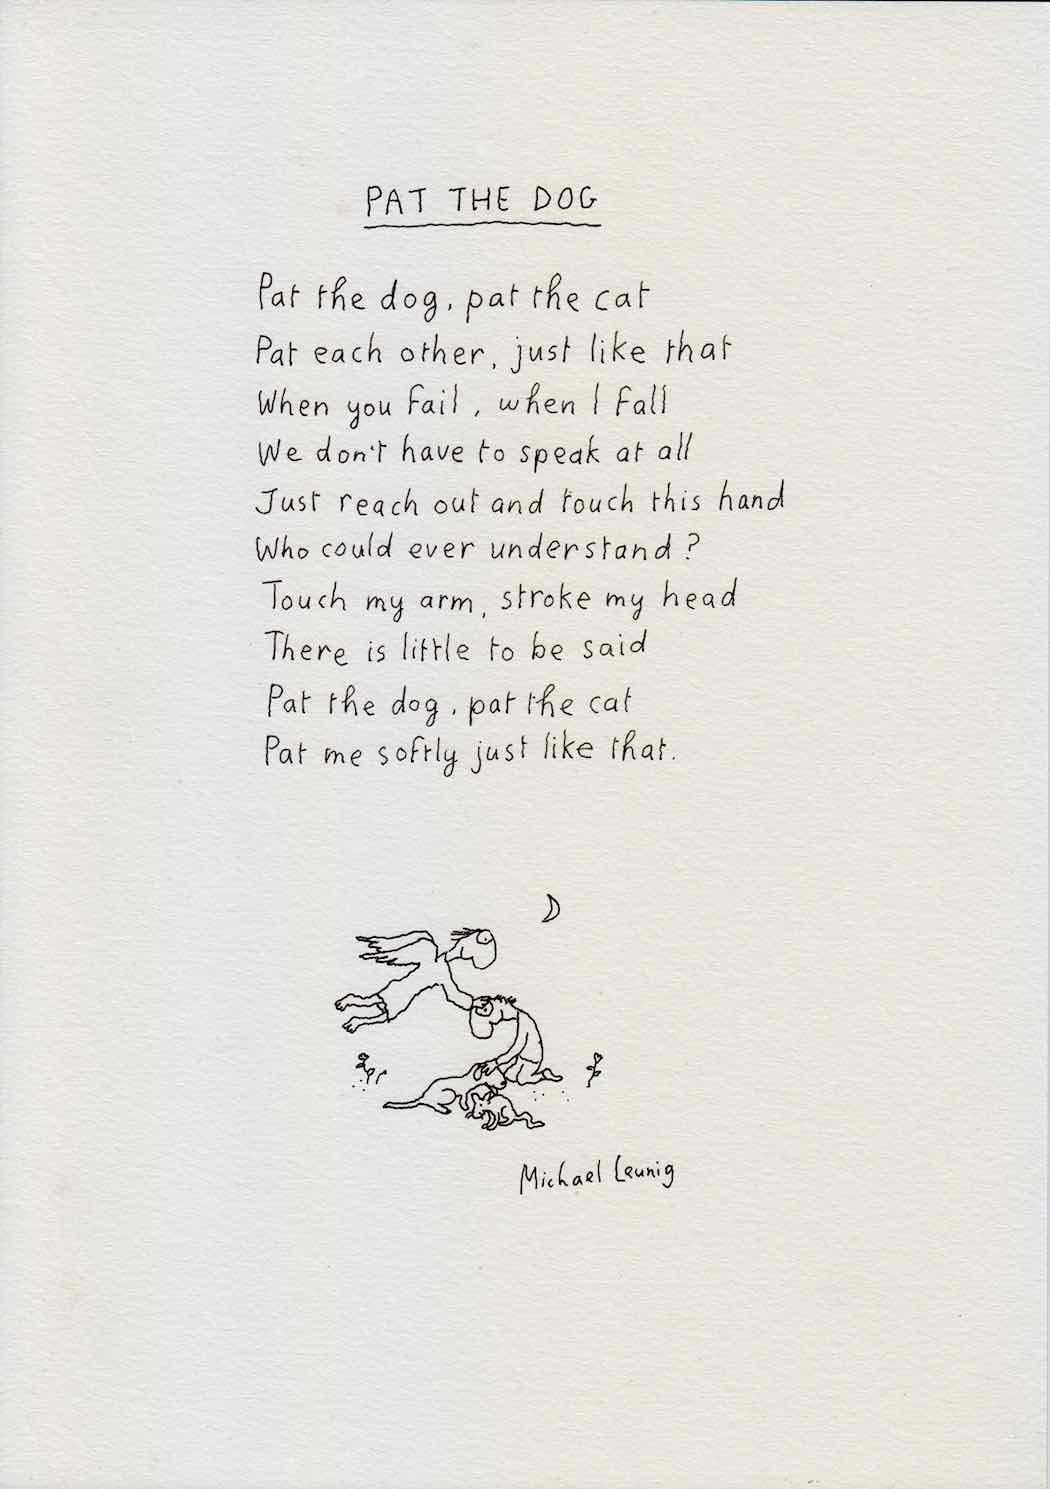 PAT THE DOG
Pat the dog, pat the cat
Pat each other, just like that
When you fail, when I fall
We don't have to speak at all
Just reach out and touch this hand
Who could ever understand?
Touch my arm, stroke my head
There is little to be said
Pat the dog, pat the cat
Pat me softly just like that.
Michael Leunig